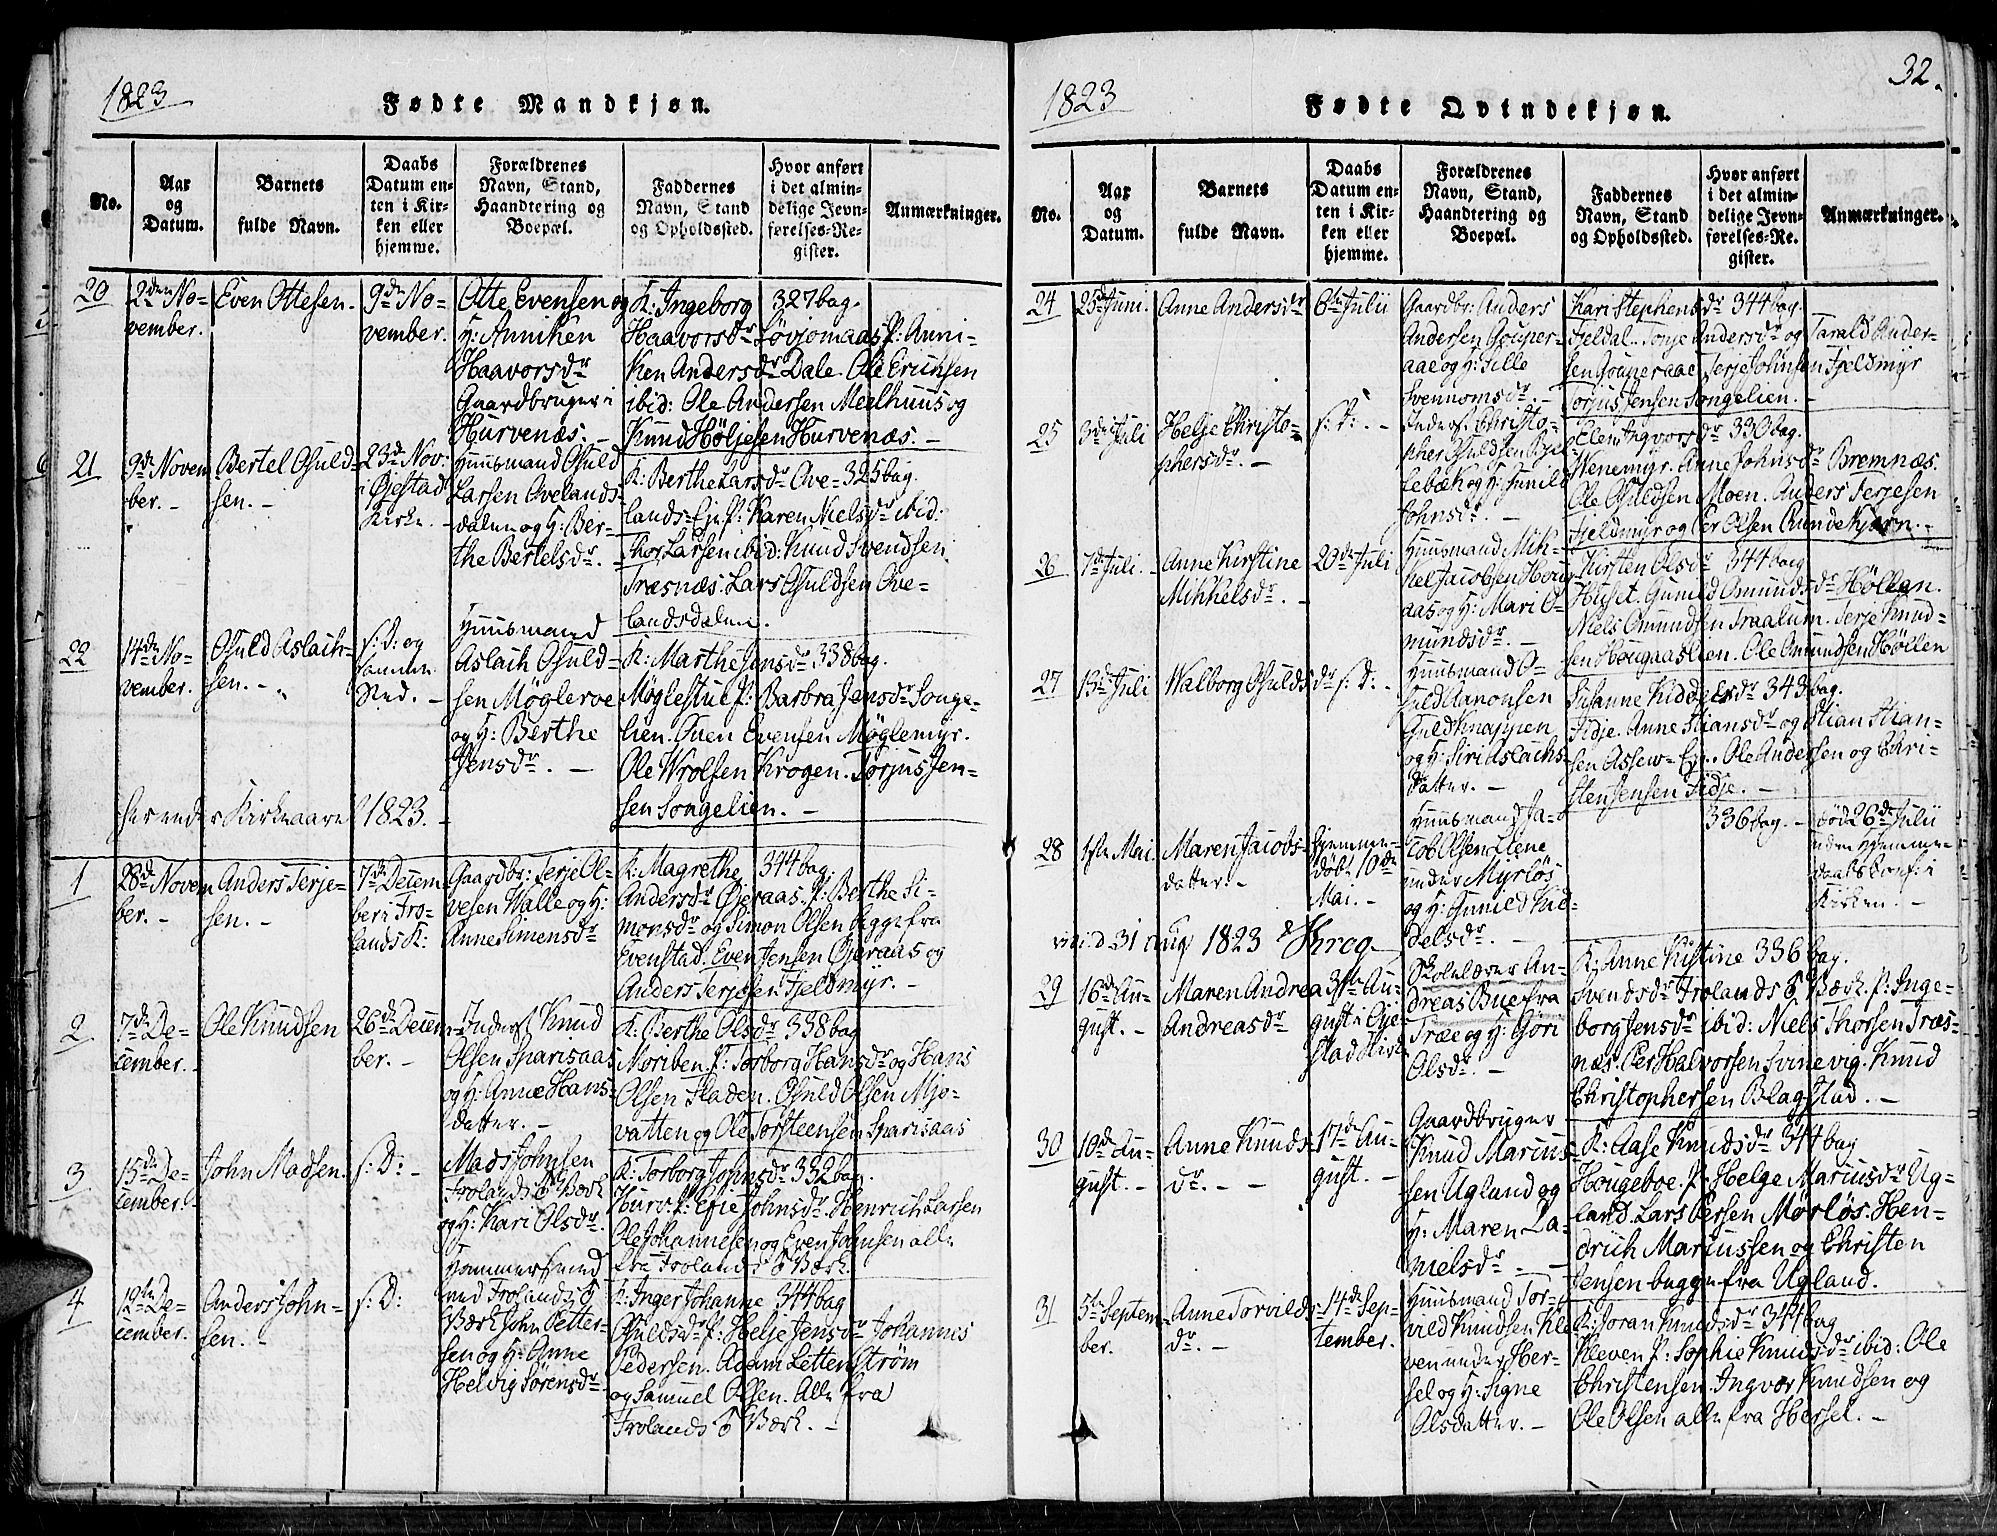 1823
Fødte Mandkjøn.
No.
Aar
og
Datum.
Barnets
fulde Navn.
Daabs
Datum en-
ten i Kir-
ken eller
hjemme.
Forældrenes
Navn, Stand,
Haandtering og
Boepæl.
Faddernes
Navn, Stand
og Opholdssted.
Hvor anført
i det almin-
delige Jevn-
førelses-Re-
gister.
Anmærkninger.
20
2den No-
vember.
Even Ottesen.
9de No-
vember.
Otte Evensen og
H: Anniken
Haavorsdr
Gaardbruger i
Hurvenæs. -
K: Ingeborg 327 bag.
Haavorsdr Løvjomaas P: Anni-
ken Andersdr Dale. Ole Erichsen
ibid: Ole Andersen Meelhuus og
Knud Höljesen Hurvenæs. -
21
9de Novem
ber. -
Bertel Osuld-
sen. -
23de Nov:
i Øjestad
Kirke. -
Huusmand Osuld
Larsen Ovelands-
dalen og H: Ber-
the Bertelsdr. -
K: Berthe Larsdr Ove- 325 bag.
lands-Eje P: Karen Nielsdr ibid:
Thor Larsen ibid: Knud Svendsen
Træsnæs. Lars Osuldsen Ove-
landsdalen.
22
14de No-
vember.
Osuld Aslach-
sen. -
s: D: og
samme
Sted. -
Huusmand
Aslach Osuld-
sen Møglerve
og H: Berthe
Jensdr. -
K: Marthe Jensdr 338 bag.
Møglestue P: Barbra Jensdr Songe-
lien. Even Evensen Møglemyr.
Ole Wrolsen Krogen. Torjus Jen-
sen Songelien. -
her ender Kirkeaaret 1823. -
1
28de Novem
ber. -
Anders Terje-
sen. -
7de Decem
ber i Fro-
lands K:
Gaardbr: Terje Ol-
vesen Walle og H:
Anne Simensdr
K: Magrethe 344 bag.
Andersdr Øjeraas. P: Berthe Si-
monsdr og Simon Olsen begge fra
Evenstad. Even Jensen Øjeraas og
Anders Terjesen Fjeldmyr. -
2
7de De-
cember. -
Ole Knudsen
26de Decem
ber. -
Inderst Knud
Olsen Sparisaas
og H: Anne Hans-
datter. -
K: Berthe Olsdr 338 bag
Moriben P: Torborg Hansdr og Hans
Olsen Fladen. Osuld Olsen Mjo-
vatten og Ole Torsteensen Sparisaas
3
15de De-
cember. -
John Madsen.
s: D: -
Mads Johnsen
Frolands Værk
og H: Kari Olsdr.
K: Torborg Johnsdr 332 bag.
Hurv. P: Efie Johnsdr. Henrich Larsen
Ole Johannesen og Even Johnsen alle
fra Frolands Værk.
4
12te De-
cember.
Anders John-
sen. -
s: D:
Hammersmed
ved Frolands
Værk John Petter-
sen og H: Anne
Helvig Sørensdr
K: Inger Johanne 344 bag
Osuldsdr P: Helje Jensdr Johannis
Pedersen. Adam Letten Strøm
og Samuel Olsen. Alle fra
Frolands Værk. -
1823
32.
Fødte Qvindekjøn.
No.
Aar
og
Datum.
Barnets
fulde Navn.
Daabs
Datum en-
ten i Kir-
ken eller
hjemme.
Forældrenes
Navn, Stand,
Haandtering og
Boepæl.
Faddernes
Navn, Stand
og Opholdssted.
Hvor anført
i det almin-
delige Jevn-
førelses-Re-
gister.
Anmærkninger.
24
25de Juni.
Anne Andersdr
6te Julii
Gaardbr: Anders
Andersen Gouper-
aae og H: Sille
Svennomsdr. -
Kari Stephensdr 344 bag.
Fjeldal. Tonje Andersdr og Tarald Ander-
sen Gouperaae Terje Johnsen Fjeldmyr
Torjus Jensen Songelien. -
25
3de Juli
Helje Christo-
phersdr. -
s: D: -
Inderst Christo-
pher Osuldsen Kjel-
lebæk og H: Gunild
Johnsdr. -
Elen Ingvorsdr 330 bag.
Wenemyr. Anne Johnsdr Bremnæs.
Ole Osuldsen Moen. Anders Terjesen
Fjeldmyr og Per Olsen Rundekjærn. -
26
7de Juli. -
Anne Kirstine
Mikkelsdr. -
20de Juli
Huusmand Mik-
kel Jacobsen Houg-
aas og H: Mari O-
mundsdr. -
Kirsten Olsdr 344 bag
Huset. Gunild Omundsdr Höllen.
Niels Omundsen Traalum. Terje Knud-
sen Hougaaslien. Ole Omundsen Höllen
27
13de Juli
Walborg Osulds
dr
s: D: -
Huusmand O-
suld Aanonsen
Guldknappen
og H: Siri Aslachs-
datter. -
Susanne Kiddelsdr 343 bag.
Fidje. Anne Stiansdr og Stian Stian-
sen Assew-Eje. Ole Andersen og Chri-
sten Jensen Fidje. -
28
1ste Mai.
Maren Jacobs-
datter. -
hjemme-
døbt 10de
Mai. -
Huusmand Ja-
cob Olsen Lene
under Myrløs
og H: Gunild Kid-
delsdr. -
336 bag. -
død 26de Julii
uden Hjemme-
daabs Conf: i
Kirken. -
vivid 31 Aug 1823 Krog
29
16de Au-
gust. -
Maren Andrea
Andreasdr
31te Au-
gust i Øje-
stad Kirk
Skolelærer An-
dreas Bue fra
Træe og H: Gori
Olsdr. -
K: Anne Kistine 336 bag.
Svendsdr Frolands Værk. P: Inge-
borg Jensdr ibid: Niels Thorsen Træs-
næs. Per Halvorsen Svinevig. Knud
Christophersen Blagstad. -
30
10de Au-
gust. -
Anne Knuds-
dr. - -
17de Au-
gust. -
Gaardbruger
Knud Marius-
sen Ugland og
H: Maren Da-
nielsdr. -
K: Aase Knudsdr 344 bag
Hougeboe. P: Helge Mariusdr Ug-
land. Lars Persen Mørløs. Hen-
drich Mariussen og Christen
Jensen begge fra Ugland.
31
5te Septem
ber.
Anne Torvilds-
dr. -
14de Sep-
tember.
Huusmand Tor-
vild Knudsen Kle-
ven under Her-
sel og H: Signe
Olsdatter. -
K: Joran Knudsdr 344 bag
Kleven P: Sophie Knudsdr ibid: Ole
Christensen. Ingvor Knudsen og
Ole Olsen alle fra Hersel. -